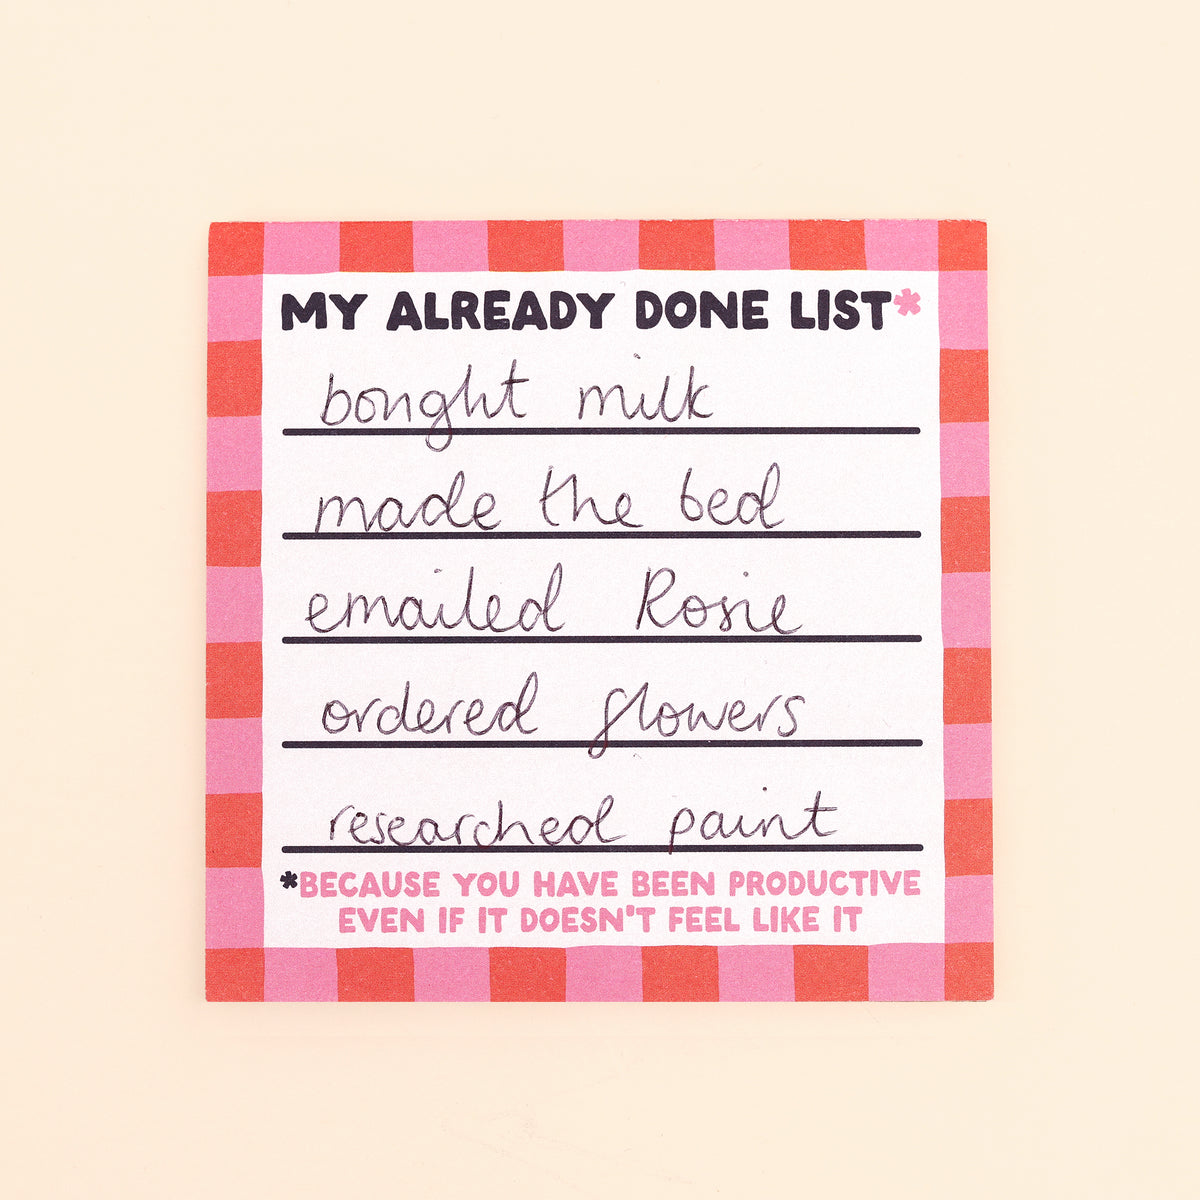 MY ALREADY DONE LIST*
bought milk
made the bed
emailed Rosie
ordered flowers
researched paint
*BECAUSE YOU HAVE BEEN PRODUCTIVE
EVEN IF IT DOESN'T FEEL LIKE IT